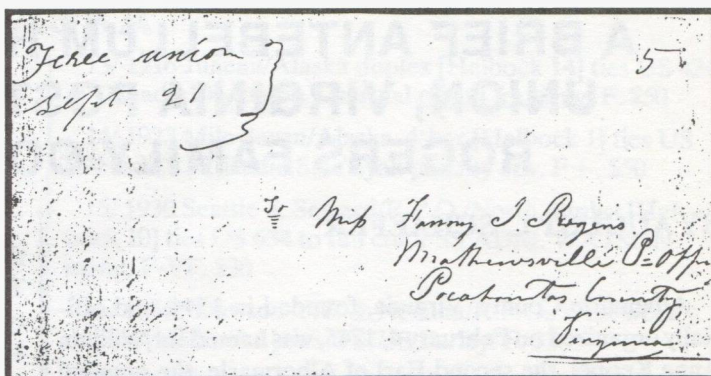 Free union
Sept 21
5
To Miss Fanny J Rogers
Mathewsville P=Offi
Pocahontas County,
Virginia